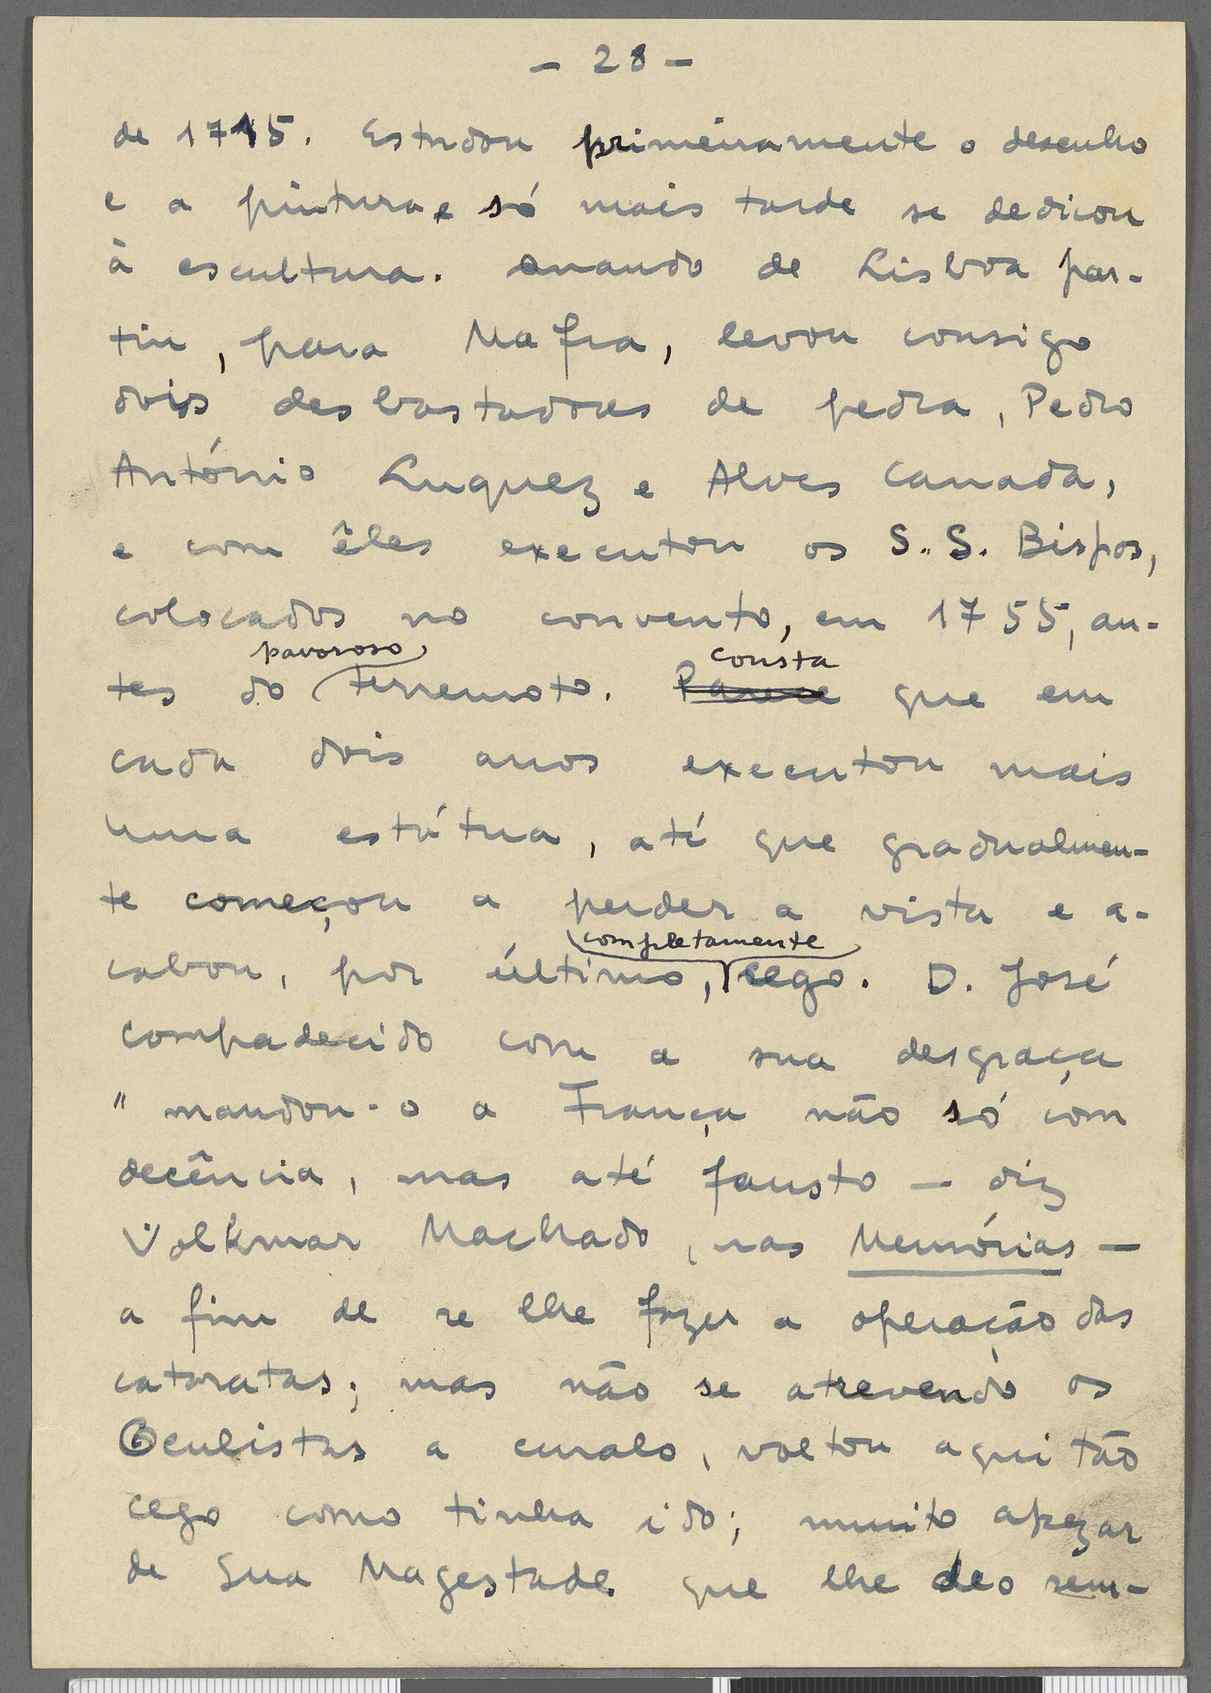 - 28 -
de 1715. Estudou primeiramente o desenho
e a pintura e só mais tarde se dedicou
à escultura. Quando de Lisboa par-
tiu, para Mafra, levou consigo
dois desbastadores de pedra, Pedro
António Luquez e Alves Canada,
e com êles executou os S.S. Bispos,
colocados no convento, em 1755, an-
pavoroso consta
tes do terremoto. Parece que em
cada dois anos executou mais
uma estátua, até que gradualmen-
te começou a perder a vista e a-
completamente
cabou, por último, cego. D. José
compadecido com a sua desgraça
" mandou-o a França não só com
decência, mas até fausto — diz
Volkmar Machado, nas Memórias —
a fim de se lhe fazer a operação das
cataratas; mas não se atrevendo os
Oculistas a curalo, voltou aqui tão
cego como tinha ido; muito apezar
de Sua Magestade que lhe deo sem-